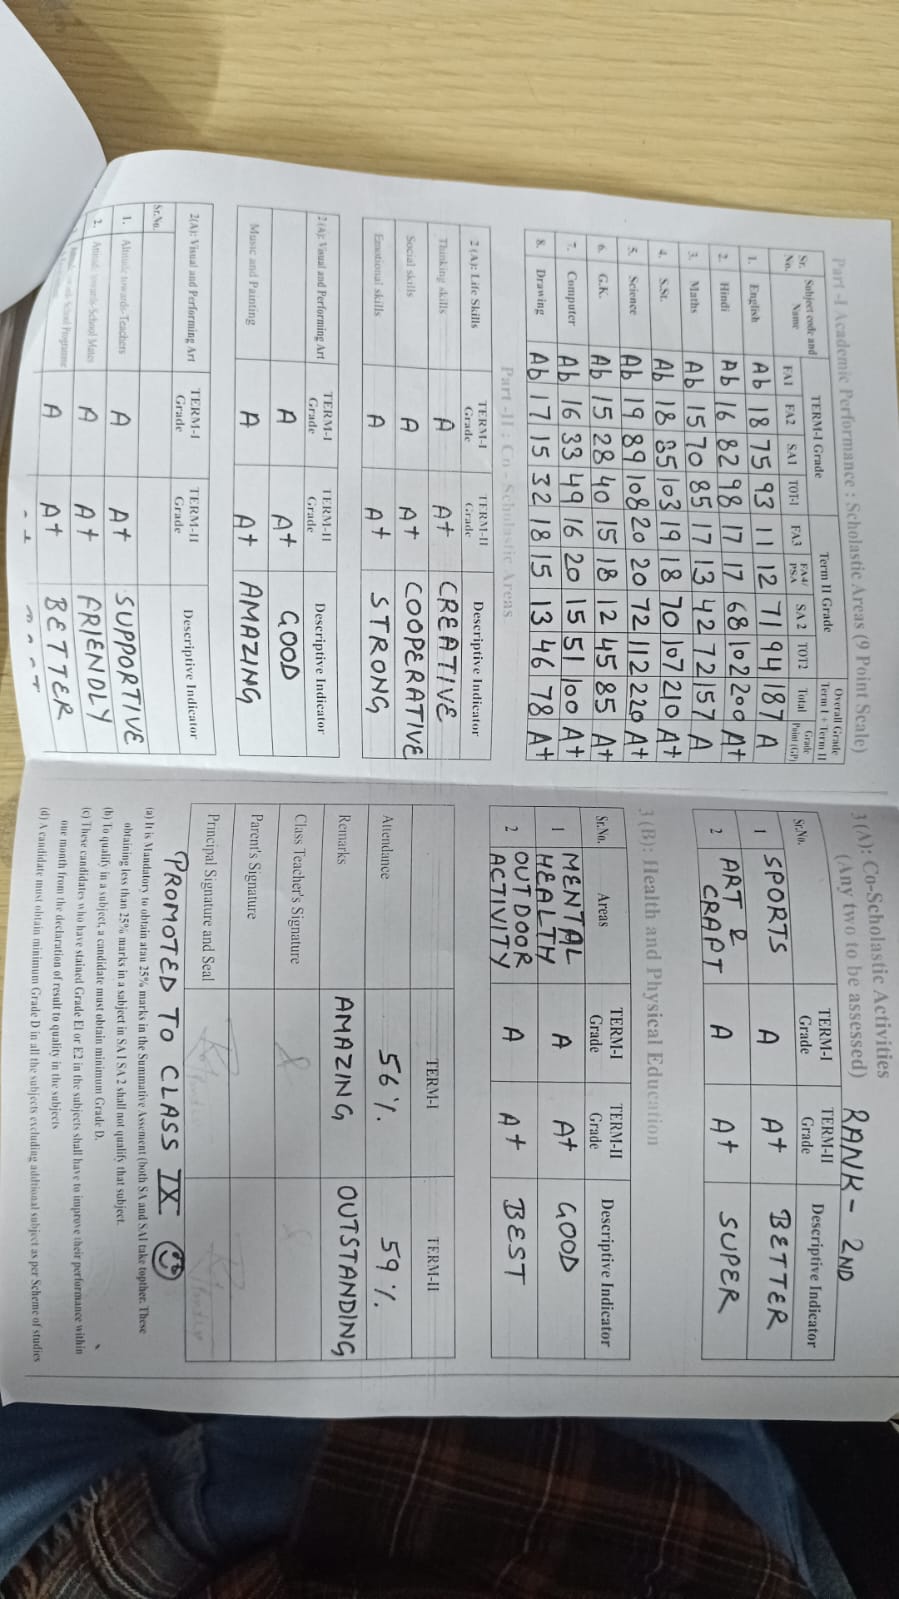 Part -I Academic Performance : Scholastic Areas (9 Point Scale)
Sr. No. Subject code and Name TERM-I Grade Term II Grade Overall Grade Term I + Term II
FA1 FA2 SA1 TOT-1 FA3 FA4/ PSA SA 2 TOT2 Total Grade Point (GP)
1. English Ab 18 75 93 11 12 71 94 187 A
2. Hindi Ab 16 82 98 17 17 68 102 200 A+
3. Maths Ab 15 70 85 17 13 42 72 157 A
4. S.St. Ab 18 85 103 19 18 70 107 210 A+
5. Science Ab 19 89 108 20 20 72 112 220 A+
6. G.K. Ab 15 28 40 15 18 12 45 85 A+
7. Computer Ab 16 33 49 16 20 15 51 100 A+
8. Drawing Ab 17 15 32 18 15 13 46 78 A+
Part -II : Co - Scholastic Areas
2 (A): Life Skills TERM-I Grade TERM-II Grade Descriptive Indicator
Thinking skills A A+ CREATIVE
Social skills A A+ COOPERATIVE
Emotional skills A A+ STRONG
2(A): Visual and Performing Art TERM-I Grade TERM-II Grade Descriptive Indicator
A A+ GOOD
Music and Painting A A+ AMAZING
2(A): Visual and Performing Art TERM-I Grade TERM-II Grade Descriptive Indicator
Sr.No.
1. Altitude towards-Teachers A A+ SUPPORTIVE
2. Attitude towards-School Mates A A+ FRIENDLY
School Programme A A+ BETTER
3(A): Co-Scholastic Activities
(Any two to be assessed) RANK - 2ND
Sr.No. TERM-I Grade TERM-II Grade Descriptive Indicator
1 SPORTS A A+ BETTER
2 ART & CRAPT A A+ SUPER
3(B): Health and Physical Education
Sr.No. Areas TERM-I Grade TERM-II Grade Descriptive Indicator
1 MENTAL HEALTH A A+ GOOD
2 OUTDOOR ACTIVITY A A+ BEST
TERM-I TERM-II
Attendance 56%. 59%.
Remarks AMAZING OUTSTANDING
Class Teacher's Signature
Parent's Signature
Principal Signature and Seal
PROMOTED TO CLASS IX
(a) It is Mandatory to obtain atau 25% marks in the Summative Assement (both SA and SAI take topther. These
obtaining less than 25% marks in a sabject in SA I SA 2 shall not qualify that subject.
(b) To qualify in a subject, a candidate must obtain minimum Grade D.
(c) These candidates who have stained Grade El or E2 in the subjects shall have to improve their performance within
one month from the declaration of result to quality in the subjects
(d) A candidate must obtain minimum Grade D in all the subjects excluding addtional subject as per Scheme of studies